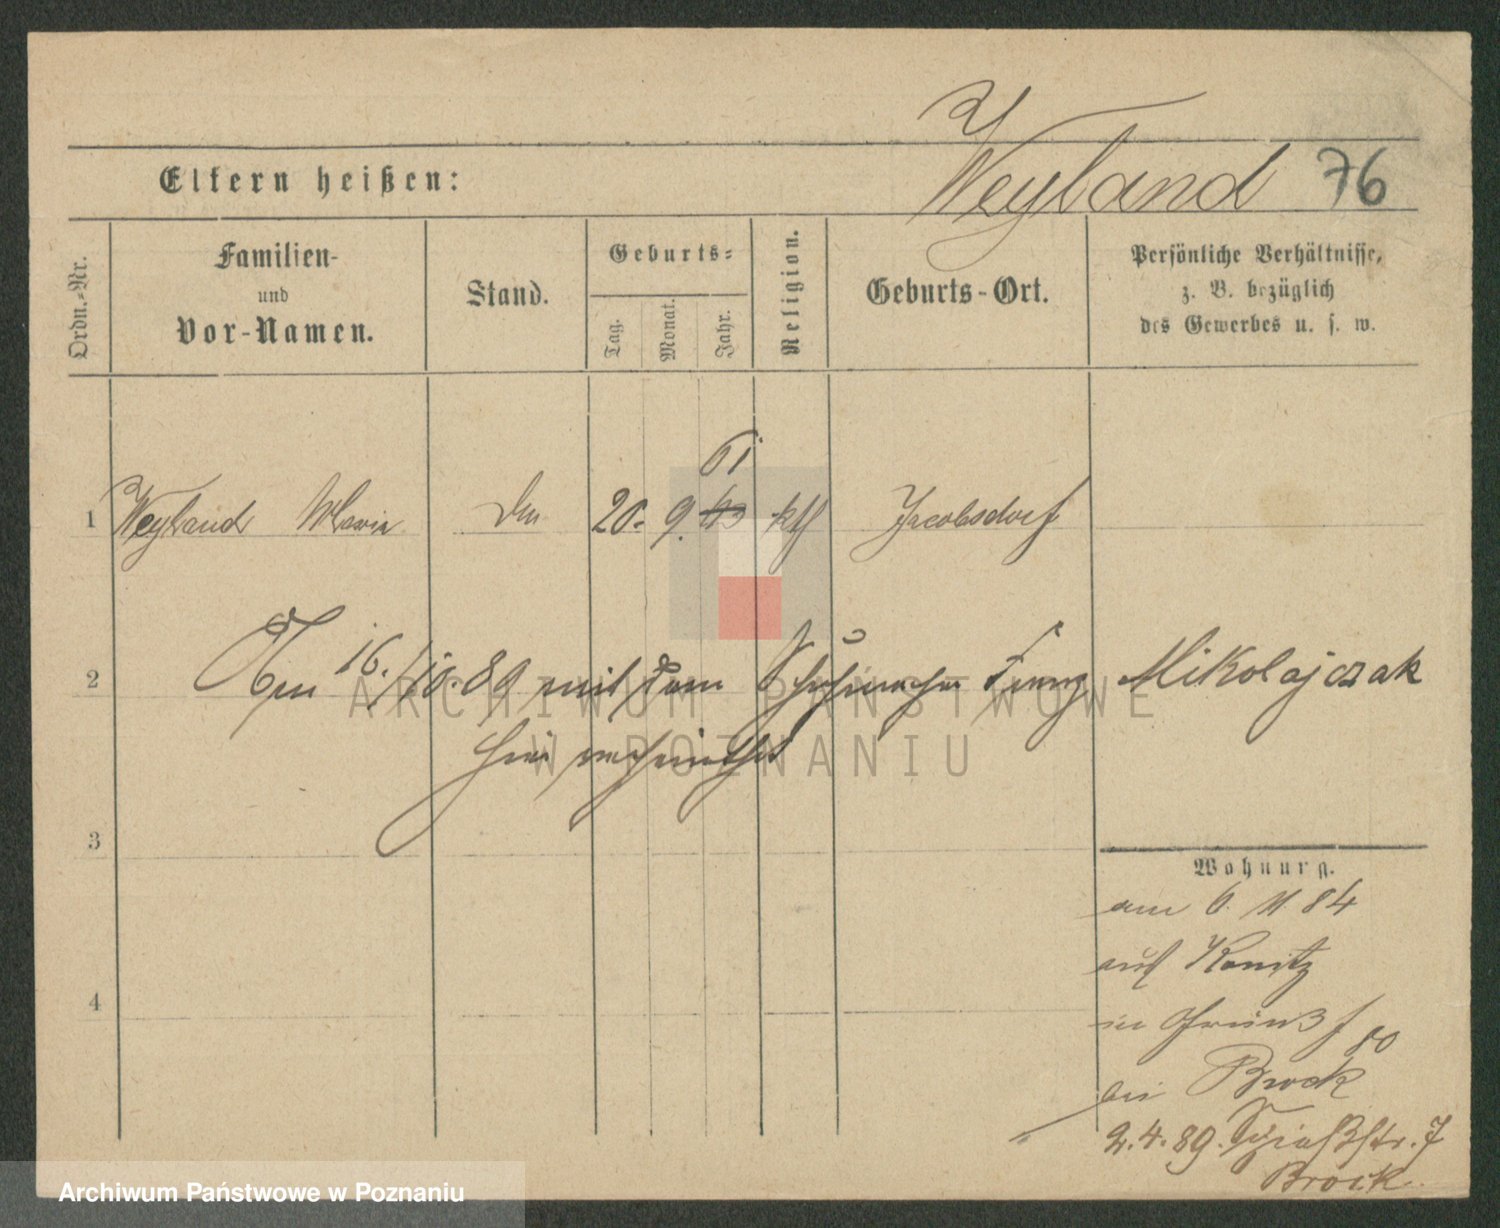 Eltern heißen:
Weyland 76
Ordn.-Nr.
Familien-
und
Vor-Namen.
Stand.
Geburts-
Tag.
Monat.
Jahr.
Religion.
Geburts-Ort.
Persönliche Verhältnisse,
z. B. bezüglich
des Gewerbes u. s. w.
61
1 Weyland Maria 20. 9. 63 kth Jacobsdorf
2 Am 16./10. 89 mit dem Schuhmacher Franz Mikolajczak
hier verheirathet
3
4
Wohnung.
am 6. 11. 84
auf Konitz
in
bei Brock
2.4.89. Schießstr. 7
Brock
ARCHIWUM PAŃSTWOWE
W POZNANIU
Archiwum Państwowe w Poznaniu